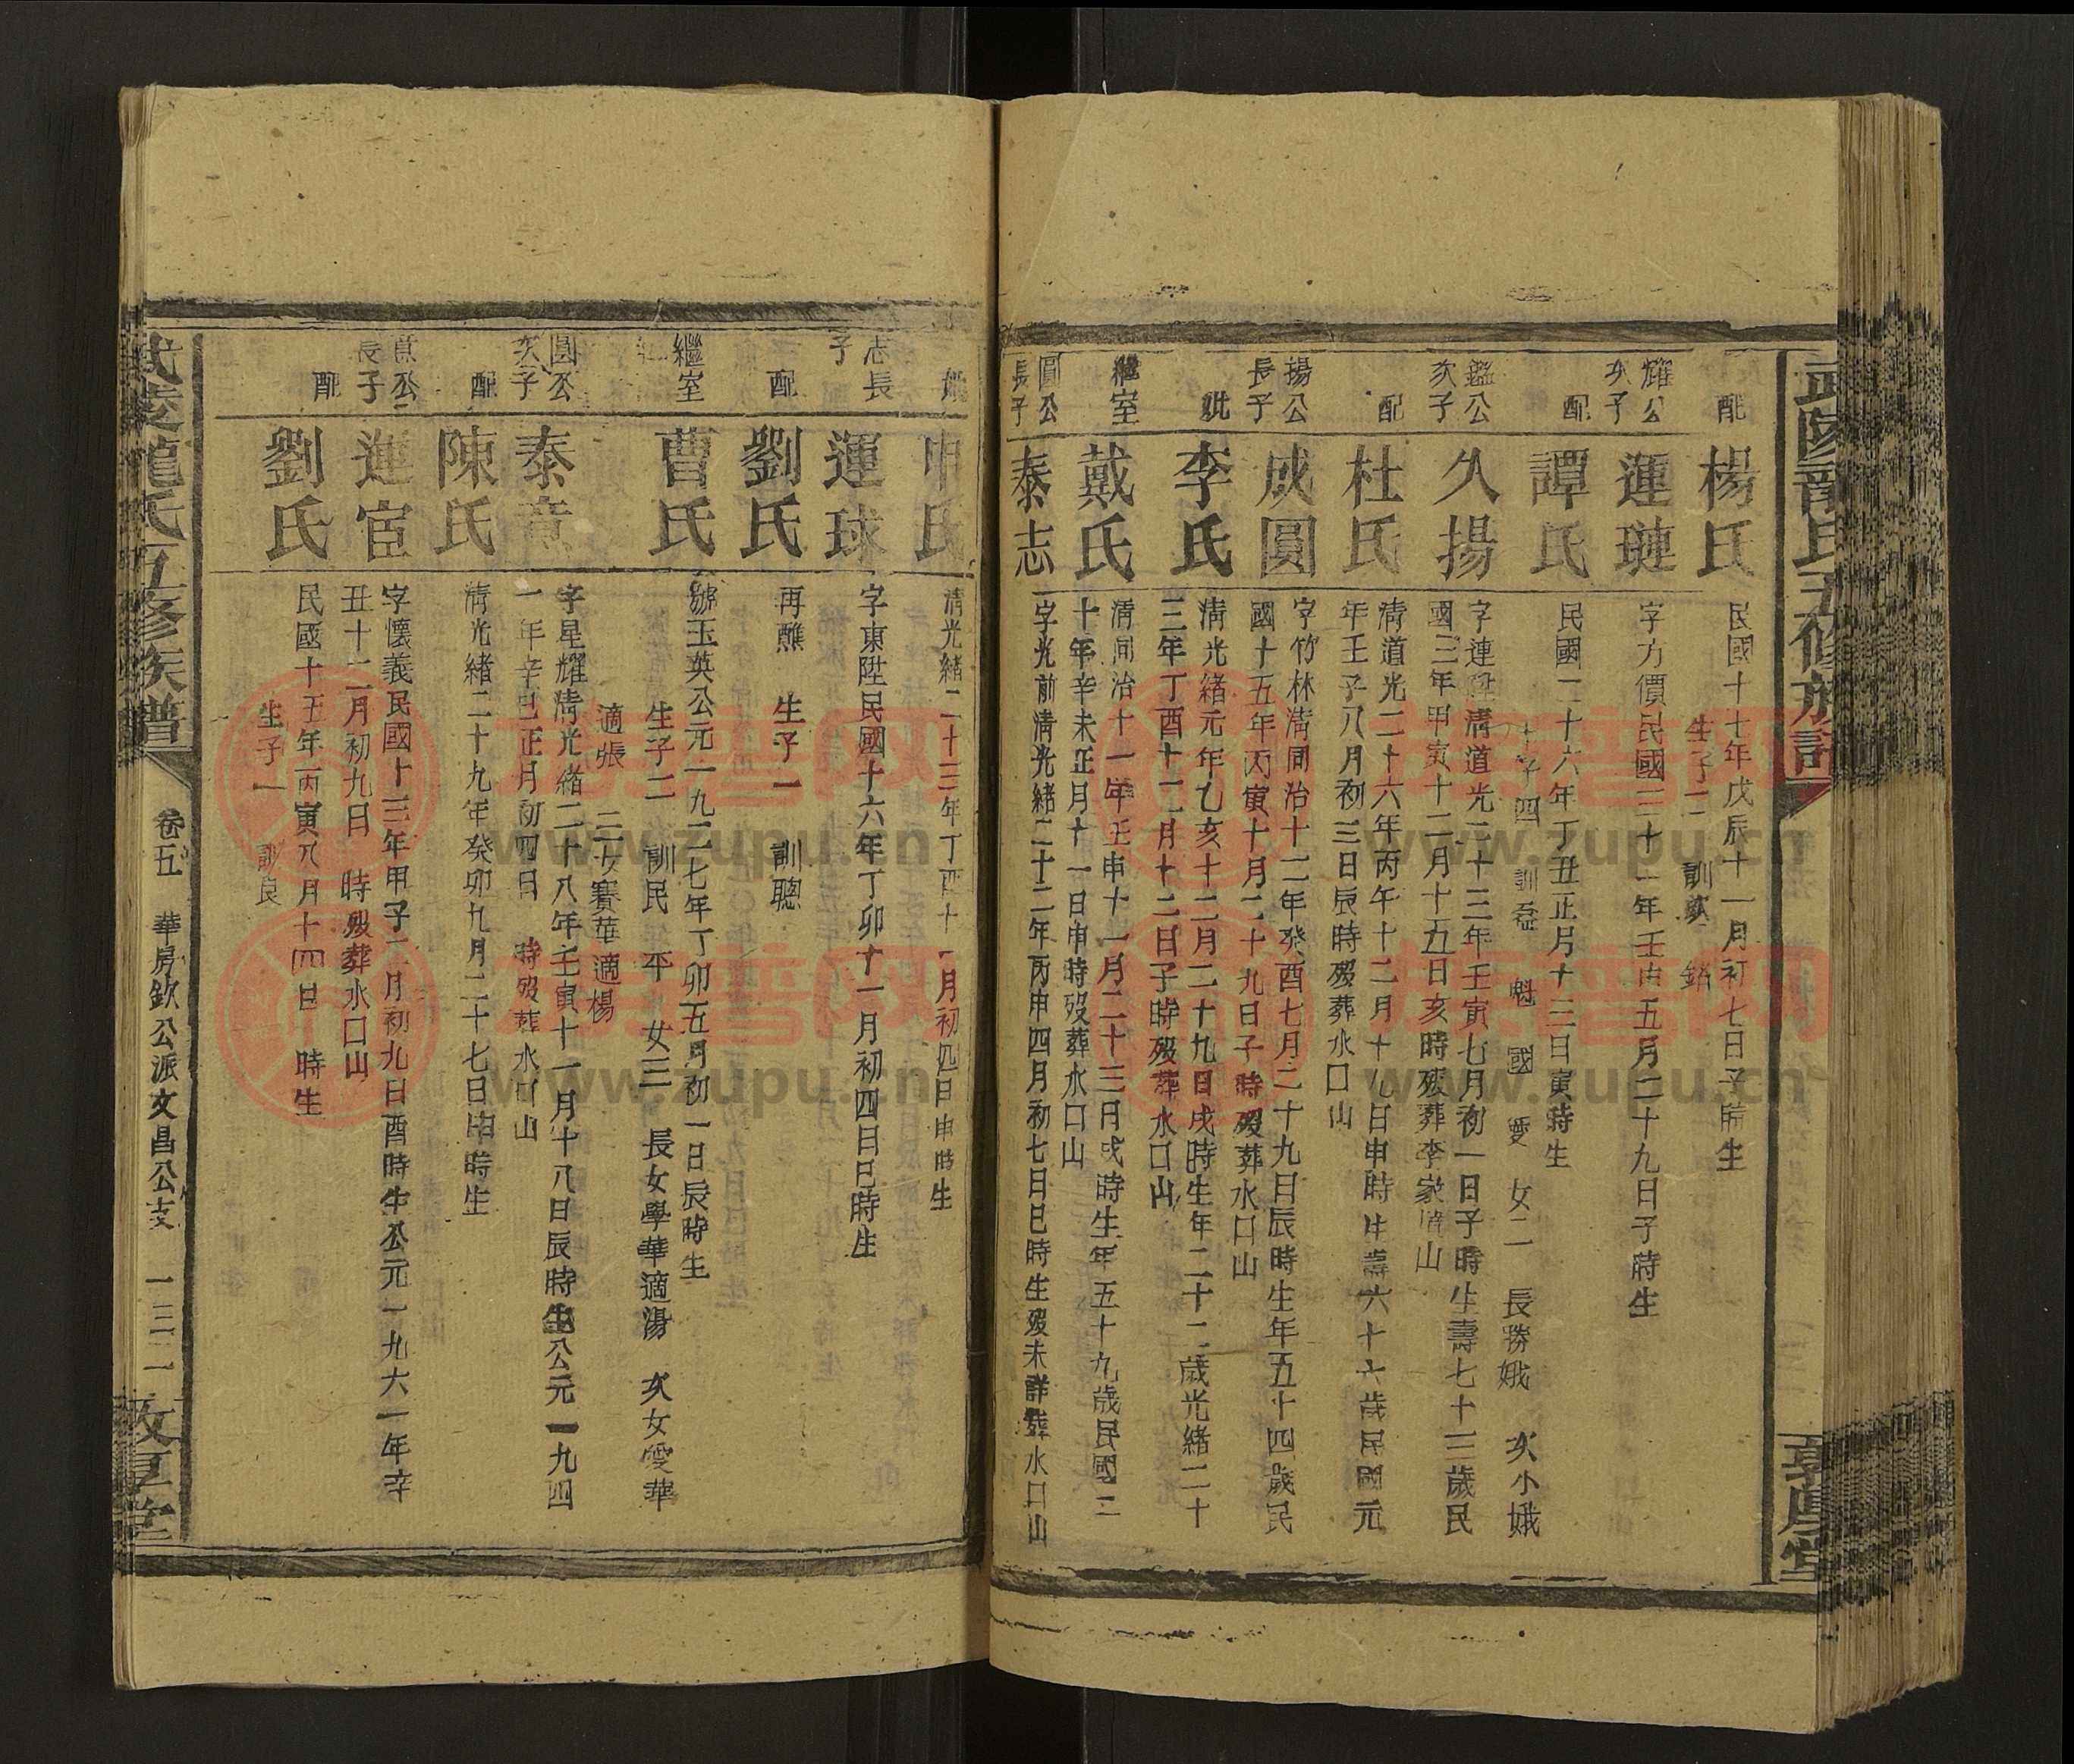 武陵龍氏五修族譜
敦厚堂
配
楊氏
民國十七年戊辰十一月初七日子時生
生子二 訓 銘
耀公次子
運璉
字方價民國二十一年壬申五月二十九日子時生
配
譚氏
民國二十六年丁丑正月十三日寅時生
生子四 訓 魁 國 愛 女二 長勝娥 次小娥
鑑公次子
久揚
字連 清道光二十三年壬寅七月初一日子時生壽七十三歲民
國三年甲寅十二月十五日亥時歿葬李家 山
配
杜氏
清道光二十六年丙午十二月十九日申時生壽六十六歲民國元
年壬子八月初三日辰時歿葬水口山
揚公長子
成圓
字竹林清同治十二年癸酉七月二十九日辰時生年五十四歲民
國十五年丙寅十月二十九日子時歿葬水口山
妣
李氏
清光緒元年乙亥十二月二十九日戌時生年二十二歲光緒二十
三年丁酉十二月十二日子時歿葬水口山
繼室
戴氏
清同治十一年壬申十一月二十三日戌時生年五十九歲民國二
十年辛未正月十一日申時歿葬水口山
圓公長子
泰志
字光前清光緒二十二年丙申四月初七日巳時生歿未詳葬水口山
申氏
清光緒二十三年丁酉十一月初四日申時生
志長子
運球
字東陞民國十六年丁卯十一月初四日巳時生
配
劉氏
再醮 生子一 訓聰
繼室
曹氏
號玉英公元一九二七年丁卯五月初一日辰時生
生子二 訓民 平 女三 長女學華適湯 次女雯華
適張 三女賽華適楊
圓公次子
泰章
字星耀清光緒二十八年壬寅十一月十八日辰時生公元一九四
一年辛巳正月初四日 時歿葬水口山
配
陳氏
清光緒二十九年癸卯九月二十七日 時生
公長子
運宦
字懷義民國十三年甲子二月初九日酉時生公元一九六一年辛
丑十二月初九日 時歿葬水口山
配
劉氏
民國十五年丙寅八月十四日 時生
生子一 訓良
武陵龍氏五修族譜
卷五 華房欽公派文昌公支 一三二
敦厚堂